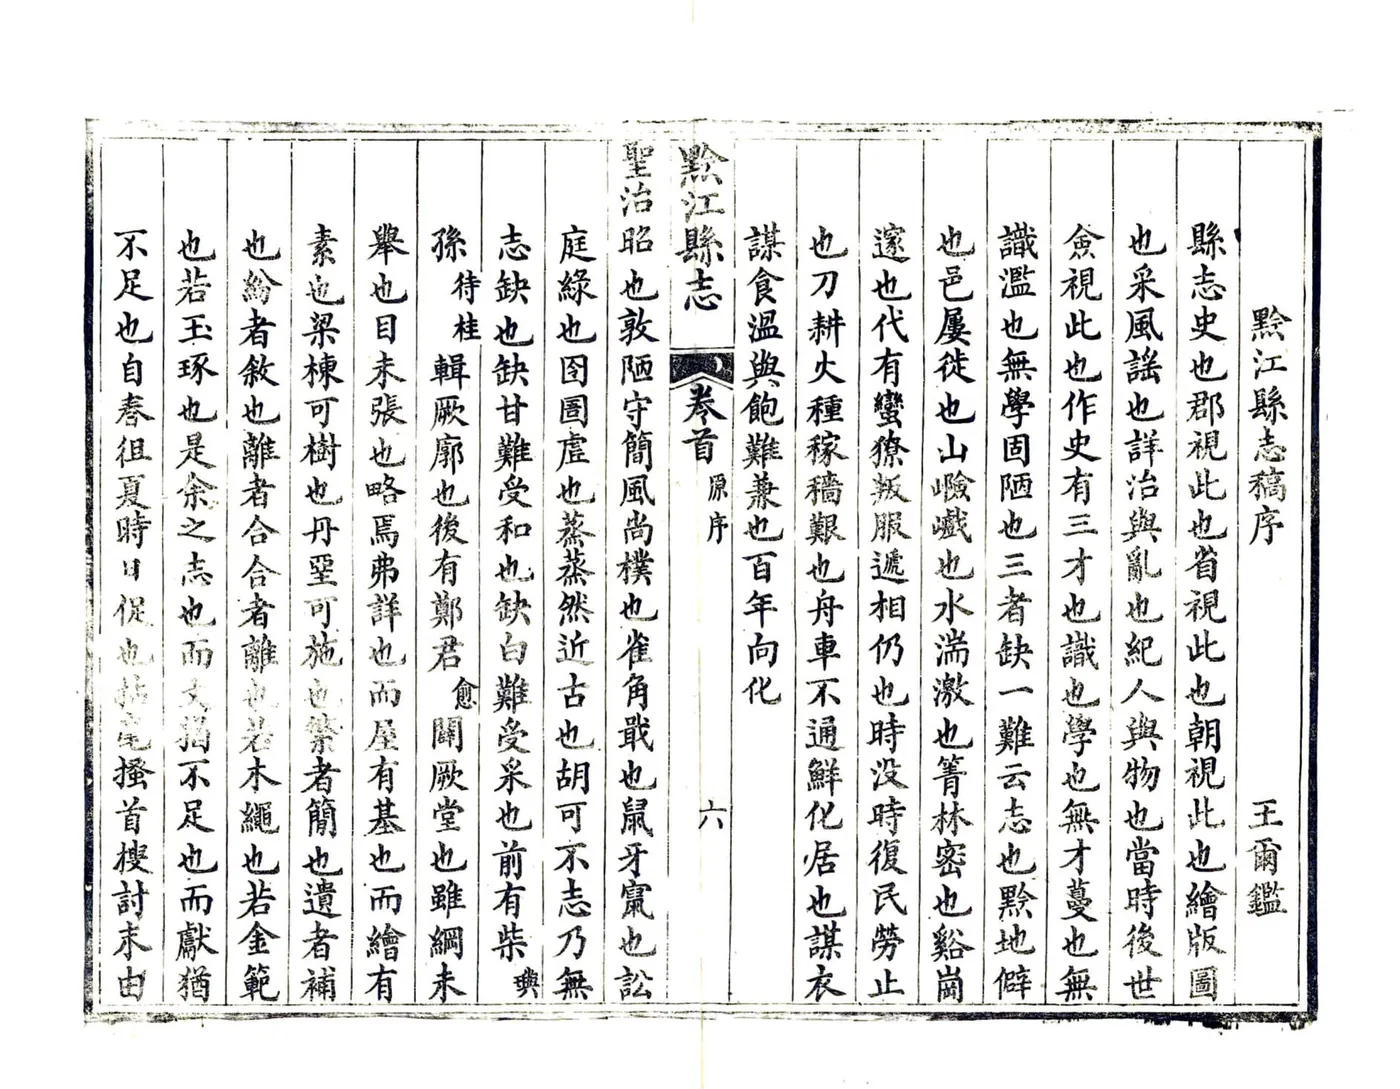 黔江縣志稿序 王爾鑑
縣志史也郡視此也省視此也朝視此也繪版圖
也采風謡也詳治與亂也紀人與物也當時後世
僉視此也作史有三才也識也學也無才蔓也無
識濫也無學固陋也三者缺一難云志也黔地僻
也邑屢徙也山嶮巇也水湍激也箐林密也谿崗
邃也代有蠻獠叛服遞相仍也時没時復民勞止
也刀耕火種稼穡艱也舟車不通鮮化居也謀衣
謀食溫與飽難兼也百年向化
黔江縣志 卷首 原序 六
聖治昭也敦陋守簡風尚樸也雀角戢也鼠牙寗也訟
庭綠也囹圄虛也蒸蒸然近古也胡可不志乃無
志缺也缺甘難受和也缺白難受采也前有柴㻛
孫待桂輯厥廓也後有鄭君愈闢厥堂也雖綱未
舉也目未張也略焉弗詳也而屋有基也而繪有
素也梁棟可樹也丹堊可施也繁者簡也遺者補
也紛者敘也離者合合者離也若木繩也若金範
也若玉琢也是余之志也而文猶不足也而獻猶
不足也自春徂夏時日促也拈毫搔首搜討末由